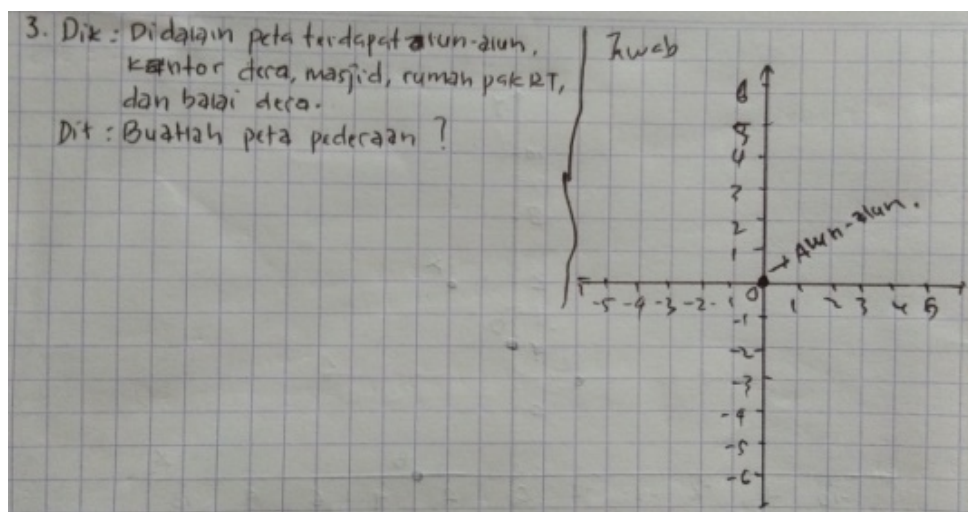 3. Dik : Didalam peta terdapat alun-alun,
kantor desa, masjid, rumah pak RT,
dan balai desa.
Dit : Buatlah peta pedesaan ?
Jwab
6
5
4
3
2
1
Alun-alun.
-5 -4 -3 -2 -1 0 1 2 3 4 5
-1
-2
-3
-4
-5
-6